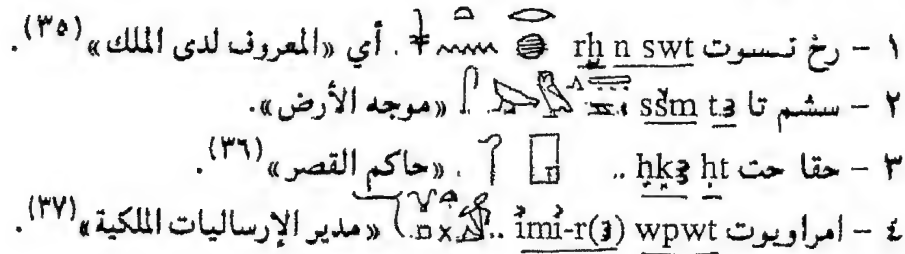 ١ - رخ نـسوت rḫ n swt . أي «المعروف لدى الملك»(٣٥).
٢ - سشم تا sšm tꜣ «موجه الأرض».
٣ - حقا حت ḥḳꜣ ḥt .. «حاكم القصر»(٣٦).
٤ - امراوبوت ỉmỉ-r(ꜣ) wpwt .. «مدير الإرساليات الملكية»(٣٧).